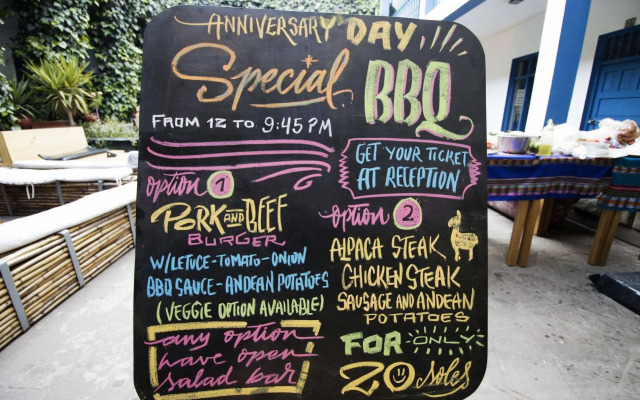 ANNIVERSARY DAY
Special BBQ
FROM 12 TO 9:45 PM
GET YOUR TICKET
AT RECEPTION
option 1
PORK AND BEEF
BURGER
W/LETUCE-TOMATO-ONION
BBQ SAUCE-ANDEAN POTATOES
(VEGGIE OPTION AVAILABLE)
any option
have open
salad bar
option 2
ALPACA STEAK
CHICKEN STEAK
SAUSAGE AND ANDEAN
POTATOES
FOR ONLY
20 soles